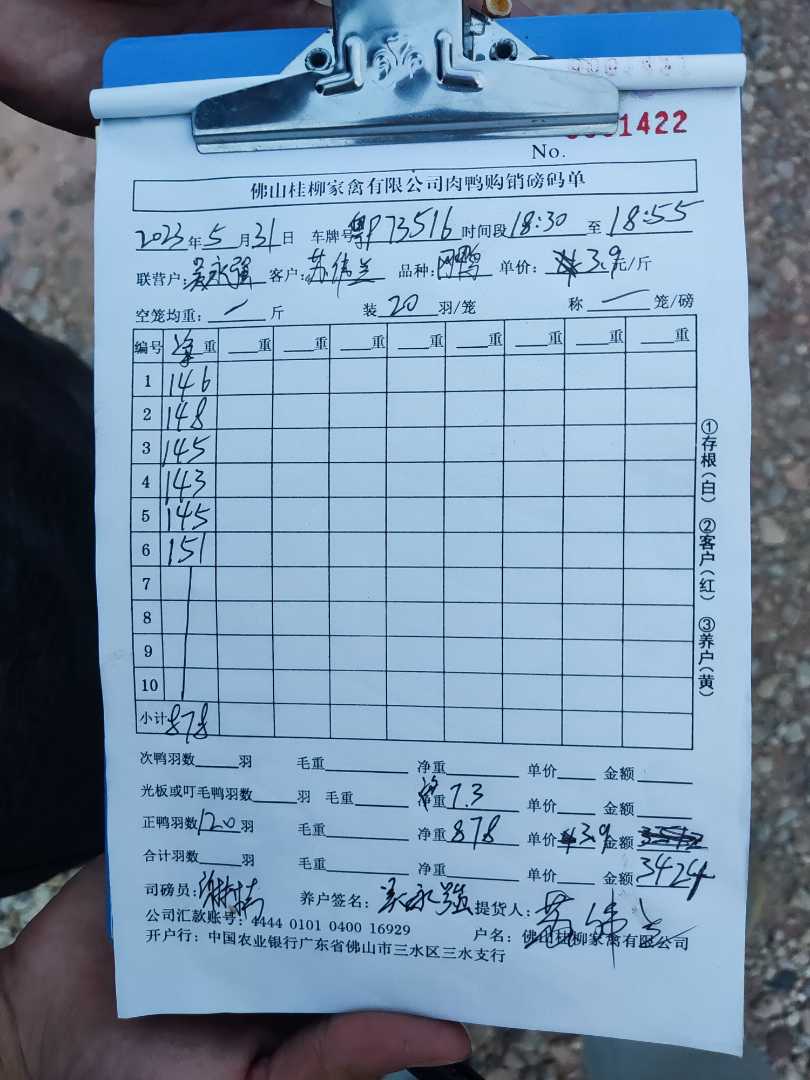 1422
No.
佛山桂柳家禽有限公司肉鸭购销磅码单
2023年5月31日 车牌号粤P73516 时间段18:30至18:55
联营户:吴永强 客户:苏伟兰 品种: 单价:3.9元/斤
空笼均重:一斤 装20羽/笼 称一笼/磅
编号 净重 重 重 重 重 重 重 重 重
1 146
2 148
3 145
4 143
5 145
6 151
7
8
9
10
小计 878
次鸭羽数 羽 毛重 净重 单价 金额
光板或叮毛鸭羽数 羽 毛重 净重7.3 单价 金额
正鸭羽数120羽 毛重 净重878 单价3.9 金额
合计羽数 羽 毛重 净重 单价 金额3424
司磅员: 养户签名:吴永强 提货人:苏伟兰
公司汇款账号:4444 0101 0400 16929 户名:佛山桂柳家禽有限公司
开户行:中国农业银行广东省佛山市三水区三水支行
①存根(白) ②客户(红) ③养户(黄)